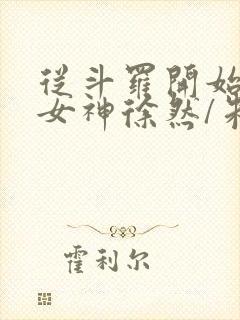 從斗羅開始
女神徐然/
霍利尔